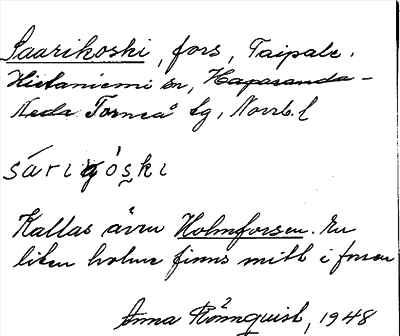 Saarikoski, fors, Taipale.
Hietaniemi sn, Haparanda -
Neda Torneå tg, Norrb. l
sárigòski
Kallas även Holmforsen. En
liten holme finns mitt i forsen
Anna Rönnquist, 1948